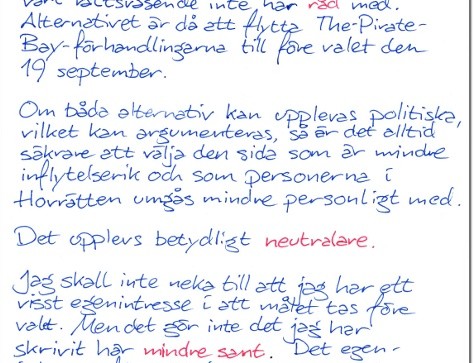 vårt rättsväsende inte har råd med.
Alternativet är då att flytta The-Pirate-
Bay-förhandlingarna till före valet den
19 september.
Om båda alternativ kan upplevas politiska,
vilket kan argumenteras, så är det alltid
säkrare att välja den sida som är mindre
inflytelserik och som personerna i
Hovrätten umgås mindre personligt med.
Det upplevs betydligt neutralare.
Jag skall inte neka till att jag har ett
visst egenintresse i att målet tas före
valet. Men det gör inte det jag har
skrivit här mindre sant. Det egen-